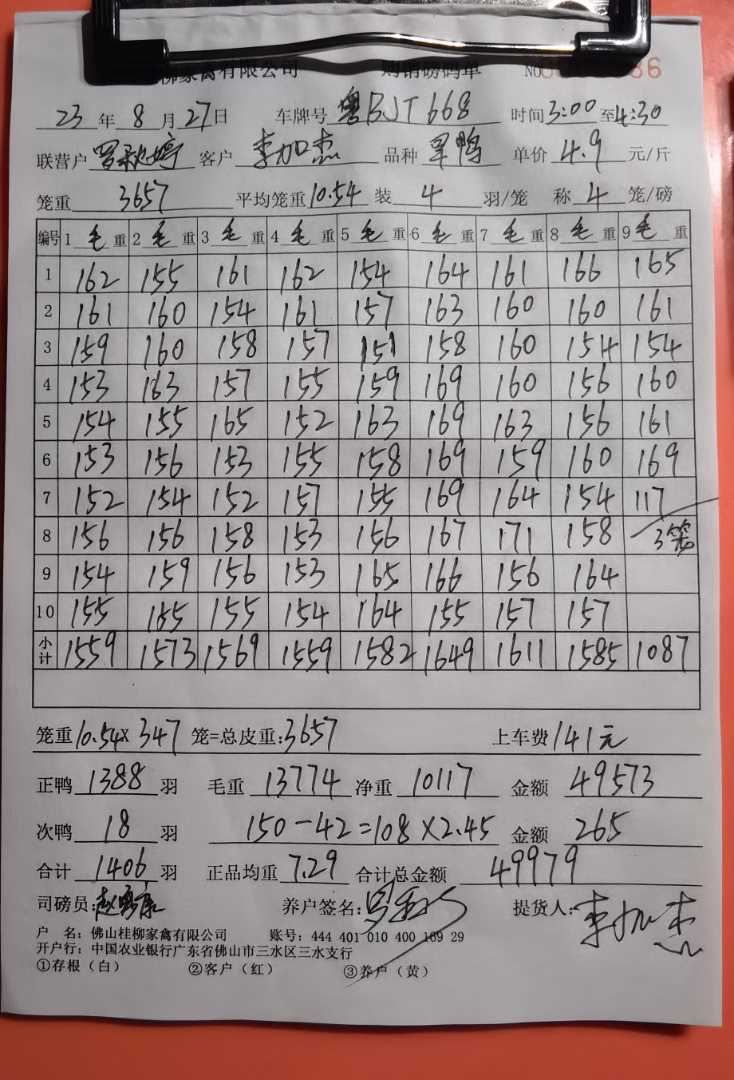 柳家禽有限公司 购销磅码单 NO 86
23年8月27日 车牌号 粤BJT668 时间3:00至4:30
联营户 罗秋婷 客户 李加杰 品种 旱鸭 单价 4.9 元/斤
笼重 3657 平均笼重10.54 装 4 羽/笼 称 4 笼/磅
编号 1毛重 2毛重 3毛重 4毛重 5毛重 6毛重 7毛重 8毛重 9毛重
1 162 155 161 162 154 164 161 166 165
2 161 160 154 161 157 163 160 160 161
3 159 160 158 157 151 158 160 154 154
4 153 163 157 155 159 169 160 156 160
5 154 155 165 152 163 169 163 156 161
6 153 156 153 155 158 169 159 160 169
7 152 154 152 157 155 169 164 154 117
8 156 156 158 153 156 167 171 158 3笼
9 154 159 156 153 165 166 156 164
10 155 155 155 154 164 155 157 157
小计 1559 1573 1569 1559 1582 1649 1611 1585 1087
笼重10.54×347笼=总皮重:3657 上车费141元
正鸭 1388 羽 毛重 13774 净重 10117 金额 49573
次鸭 18 羽 150-42=108×2.45 金额 265
合计 1406 羽 正品均重 7.29 合计总金额 49979
司磅员: 养户签名: 提货人:李加杰
户 名:佛山桂柳家禽有限公司 账号:444 401 010 400 169 29
开户行:中国农业银行广东省佛山市三水区三水支行
①存根(白) ②客户(红) ③养户(黄)